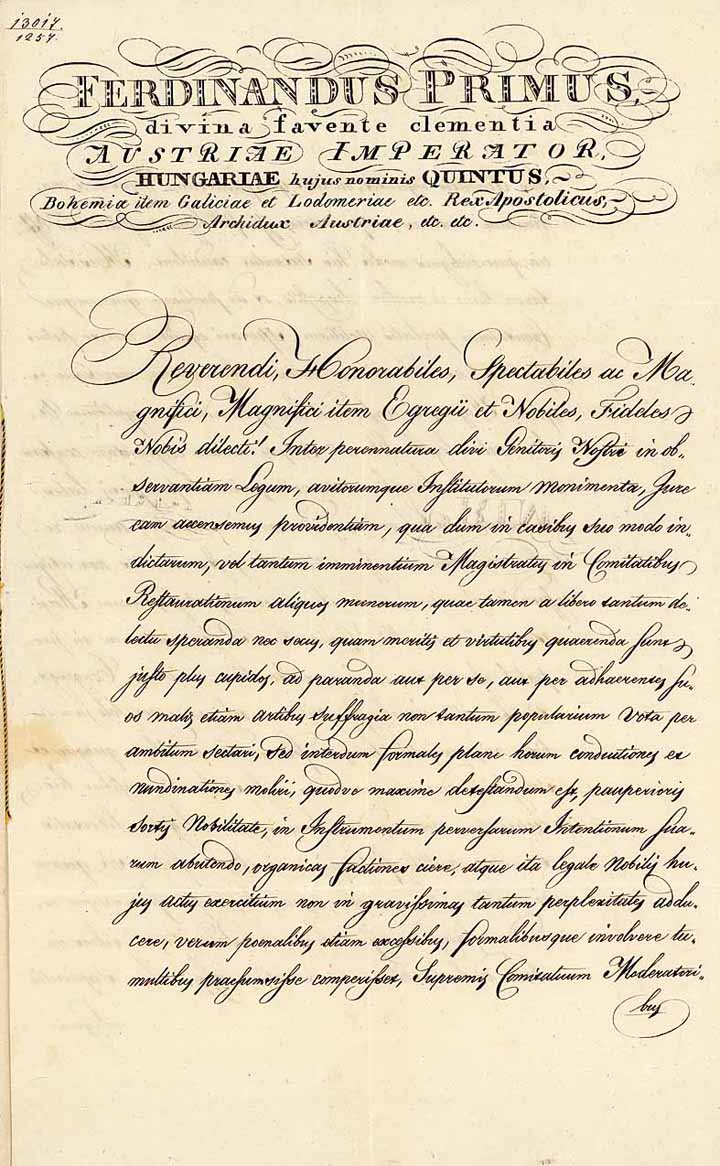 13017.
1257.
FERDINANDUS PRIMUS,
divina favente clementia
AUSTRIAE IMPERATOR,
HUNGARIAE hujus nominis QUINTUS,
Bohemiæ item Galiciae et Lodomeriae etc. Rex Apostolicus,
Archidux Austriae, etc. etc.
Reverendi, Honorabiles, Spectabiles ac Ma-
gnifici, Magnifici item Egregii et Nobiles, Fideles
Nobis dilecti! Inter perennatura divi Genitoris Nostri in ob-
servantiam Legum, avitorumque Institutorum monimenta, Jure
eam accensemus providentiam, qua dum in casibus suo modo in-
dictarum, vel tantum imminentium Magistratus in Comitatibus
Restaurationum aliquos munerum, quae tamen a libero tantum de-
lectu speranda nec secus, quam meritis et virtutibus quaerenda sunt
justo plus cupidos, ad paranda aut per se, aut per adhaerentes su-
os malis etiam artibus suffragia non tantum popularium vota per
ambitum sectari, sed interdum formales plane horum conductiones et
nundinationes moliri, quodve maxime detestandum est, pauperioris
sortis Nobilitate, in Instrumentum perversarum Intentionum sua-
rum abutendo, organicas factiones ciere, atque ita legale Nobilis hu-
jus actus exercitium non in gravissimas tantum perplexitates addu-
cere, verum poenalibus etiam excessibus, formalibusque involvere tu-
multibus praesumsisse comperisset, Supremis Comitatuum Moderatori-
bus